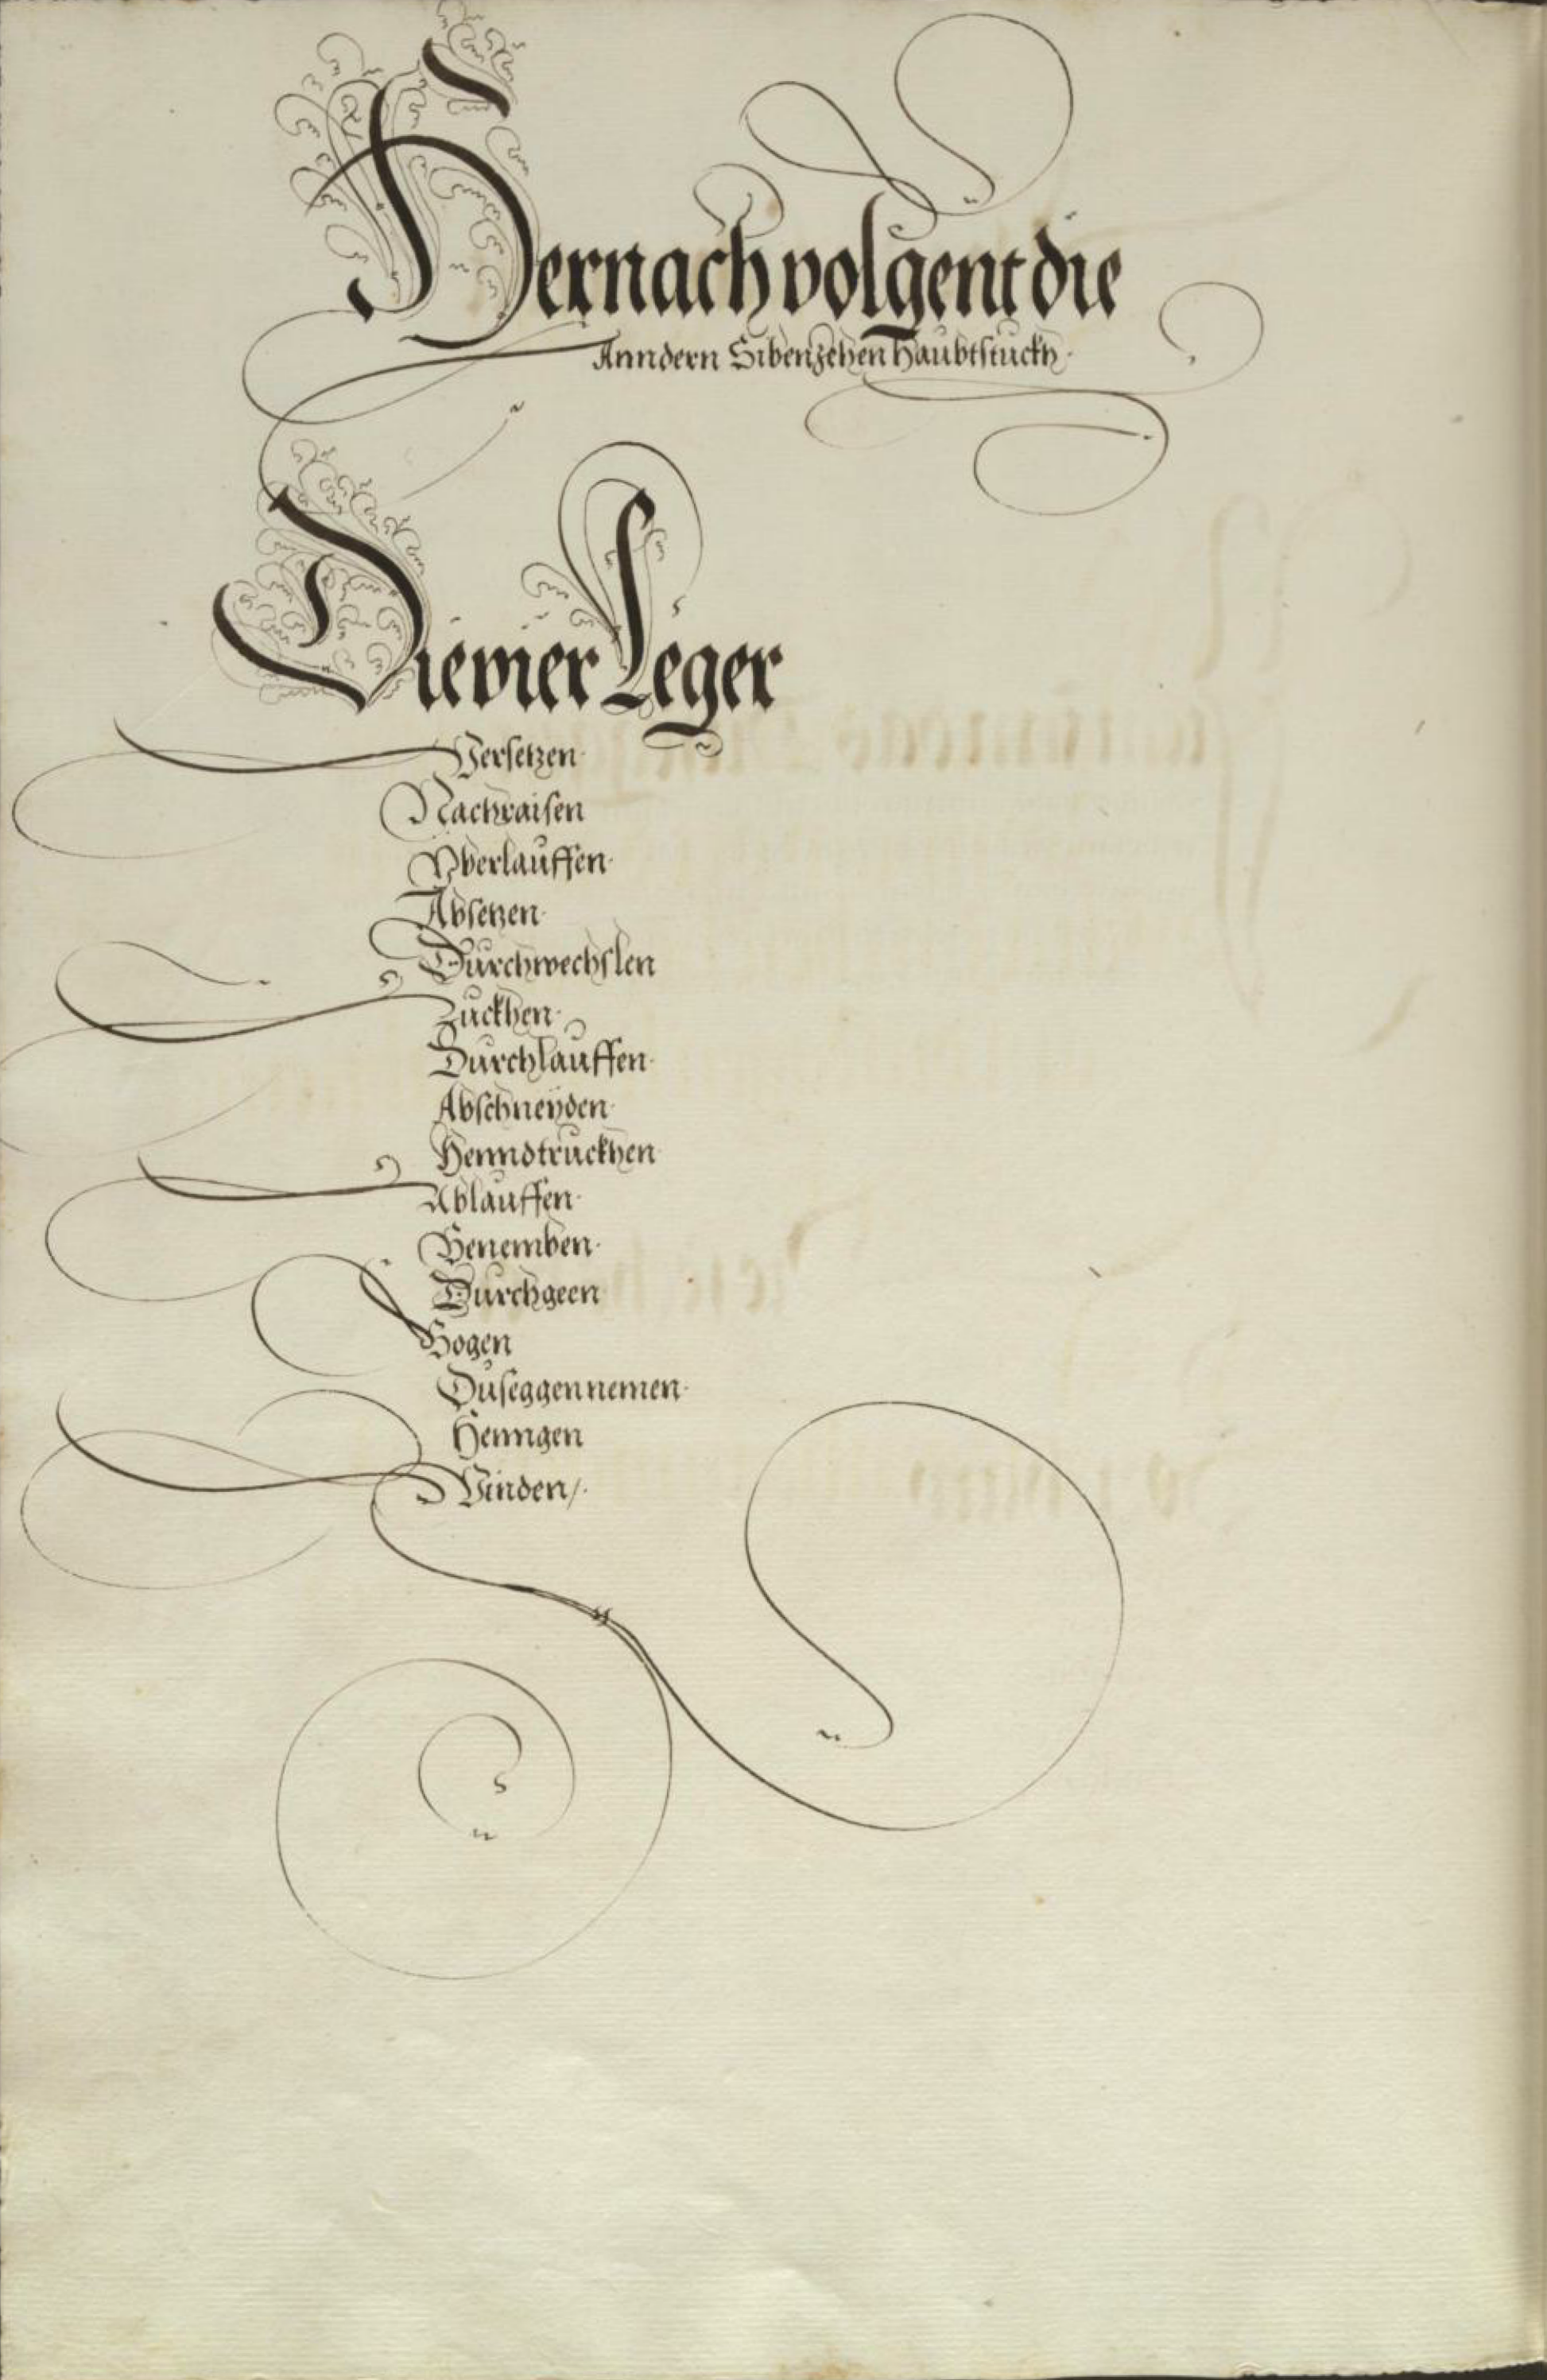 Hernach volgent die
Anndern Sibenzehen haubtstuckh.
Die vier Leger
Versetzen.
Nachraisen
Vberlauffen.
Absetzen.
Durchwechslen
Zuckhen.
Durchlauffen.
Abschneyden.
Henndtruckhen.
Ablauffen.
Benemben.
Durchgeen
Bogen
Duseggen nemen.
Henngen
Winden /.